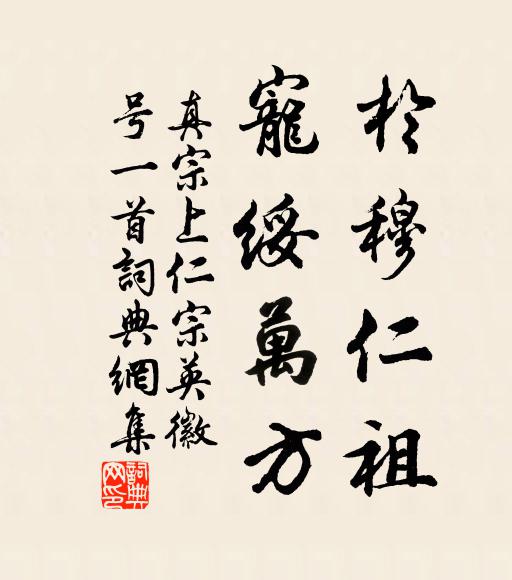 於穆仁祖
寵綏萬方
真宗上仁宗英徽
号一首詞典網集
詞典
网印